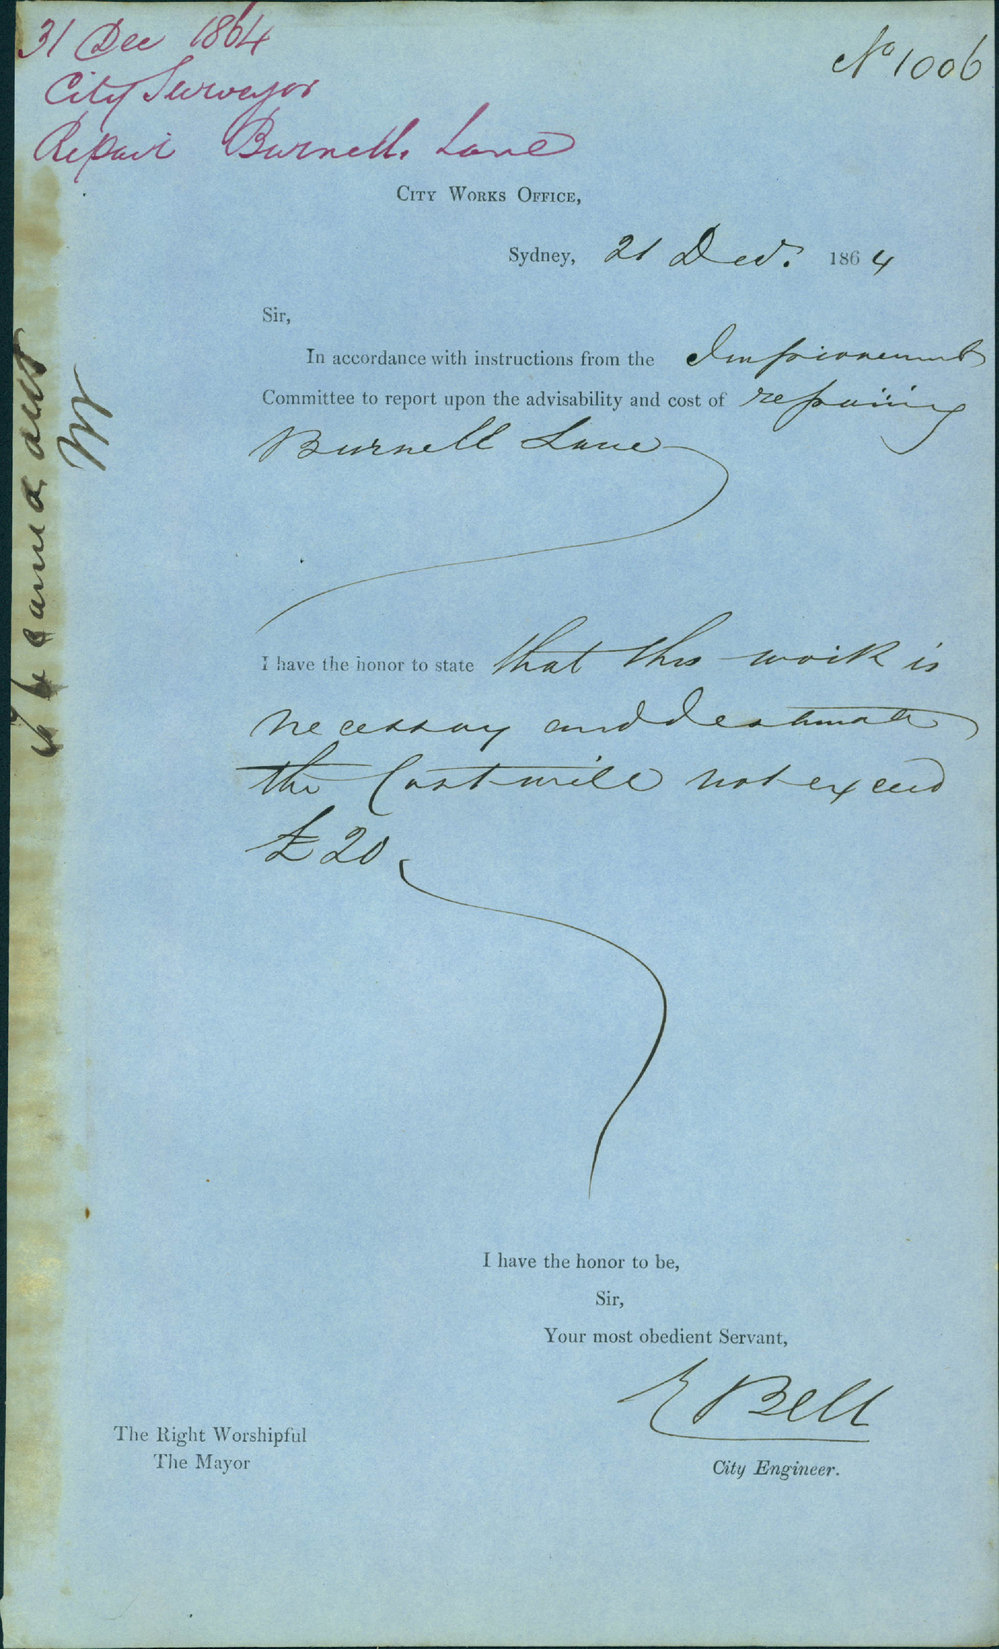 31 Dec 1864
City Surveyor
Repair Burnell Lane
No 1006
City Works Office,
Sydney, 21 Decr. 1864
Sir,
In accordance with instructions from the Improvement
Committee to report upon the advisability and cost of repairing
Burnell Lane
I have the honor to state that this work is
necessary and I estimate
the Cost will not exceed
£20
I have the honor to be,
Sir,
Your most obedient Servant,
E Bell
City Engineer.
The Right Worshipful
The Mayor
to be carried out